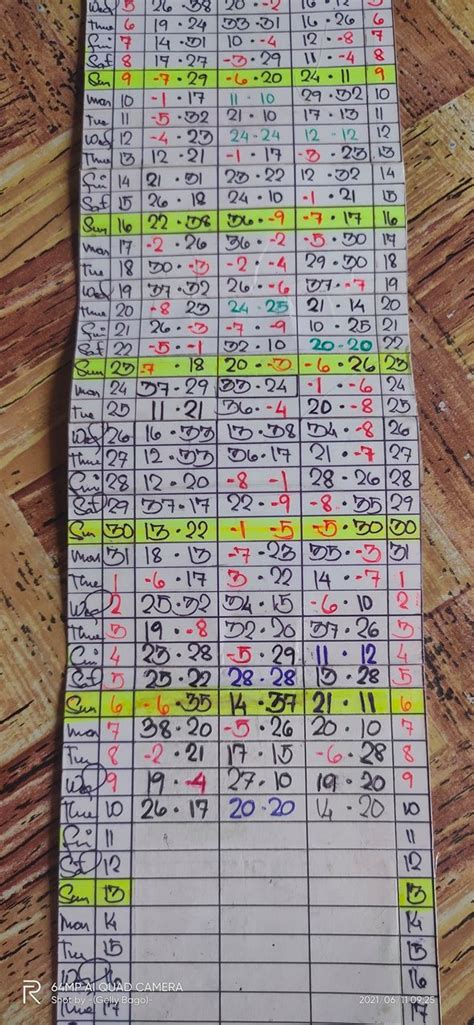 Wed 5 26 · 38 20 · -2 16 · 12 5
Thue 6 19 · 24 33 · 31 16 · 26 6
Fri 7 14 · 31 10 · -4 12 · -8 7
Sat 8 17 · 27 -3 · 29 11 · -4 8
Sun 9 -7 · 29 -6 · 20 24 · 11 9
Mon 10 -1 · 17 11 · 10 29 · 32 10
Tue 11 -5 · 32 21 · 10 17 · 13 11
Wed 12 -4 · 23 24 · 24 12 · 12 12
Thue 13 12 · 21 -1 · 17 -3 · 23 13
Fri 14 21 · 31 23 · 22 12 · 32 14
Sat 15 26 · 18 24 · 10 -1 · 21 15
Sun 16 22 · 38 36 · -9 -7 · 17 16
Mon 17 -2 · 26 36 · -2 -5 · 30 17
Tue 18 30 · -3 -2 · -4 29 · 30 18
Wed 19 37 · 32 26 · -6 37 · -7 19
Thue 20 -8 23 24 · 25 21 · 14 20
Fri 21 26 · -3 -7 · -9 10 · 25 21
Sat 22 -5 · -1 32 · 10 20 · 20 22
Sun 23 7 · 18 20 · -3 -6 · 26 23
Mon 24 37 · 29 33 · 24 -1 · -6 24
Tue 25 11 · 21 36 · -4 20 · -8 25
Wed 26 16 · 33 13 · 38 34 · -8 26
Thue 27 12 · 33 36 · 17 21 · -7 27
Fri 28 12 · 20 -8 · -1 28 · 26 28
Sat 29 37 · 17 22 · -9 -8 · 35 29
Sun 30 13 · 22 -1 · -5 -5 · 30 30
Mon 31 18 · 13 -7 · 23 35 · -3 31
Thue 1 -6 · 17 3 · 22 14 · -7 1
Wed 2 25 · 32 34 · 15 -6 · 10 2
Thue 3 19 · -8 32 · 20 37 · 26 3
Fri 4 23 · 28 -5 · 29 11 · 12 4
Sat 5 25 · 22 28 · 28 13 · 28 5
Sun 6 -6 · 35 14 · 37 21 · 11 6
Mon 7 38 · 20 -5 · 26 20 · 10 7
Tue 8 -2 · 21 17 · 15 -6 · 28 8
Wed 9 19 · -4 27 · 10 19 · 20 9
Thue 10 26 · 17 20 · 20 14 · 20 10
Fri 11 11
Sat 12 12
Sun 13 13
Mon 14 14
Tue 15 15
Wed 16 16
Thue 17 17
R 64MP AI QUAD CAMERA
Shot by -(Golly Bago)- 2021/06/11 09:25